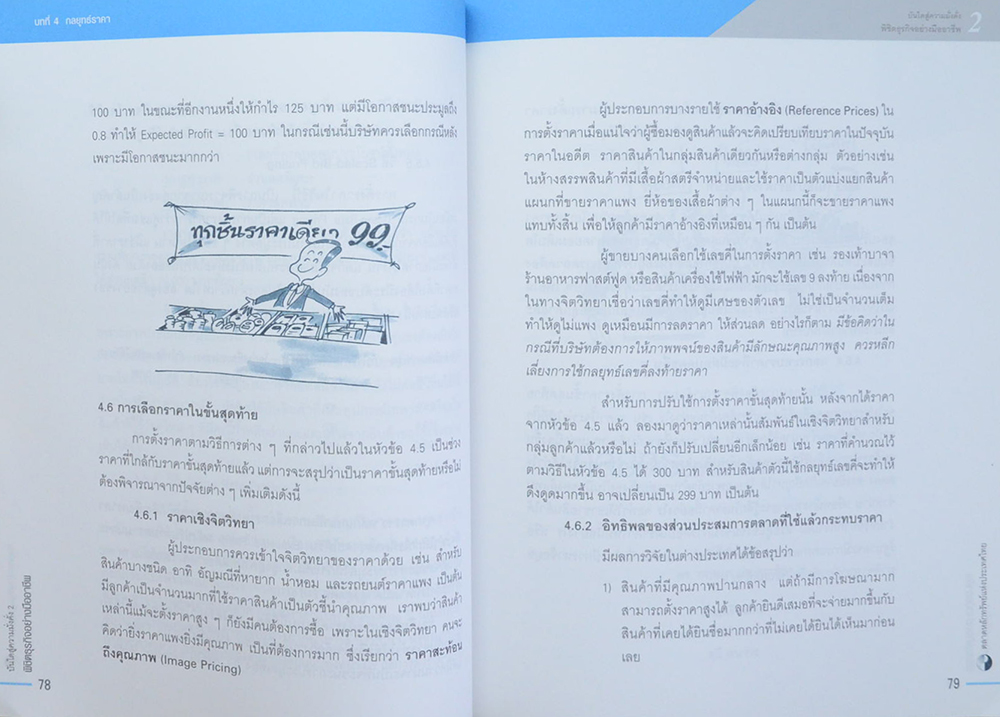 บทที่ 4 กลยุทธ์ราคา
100 บาท ในขณะที่อีกงานหนึ่งให้กำไร 125 บาท แต่มีโอกาสชนะประมูลถึง
0.8 ทำให้ Expected Profit = 100 บาท ในกรณีเช่นนี้บริษัทควรเลือกกรณีหลัง
เพราะมีโอกาสชนะมากกว่า
ทุกชิ้นราคาเดียว 99.-
4.6 การเลือกราคาในขั้นสุดท้าย
การตั้งราคาตามวิธีการต่าง ๆ ที่กล่าวไปแล้วในหัวข้อ 4.5 เป็นช่วง
ราคาที่ใกล้กับราคาขั้นสุดท้ายแล้ว แต่การจะสรุปว่าเป็นราคาขั้นสุดท้ายหรือไม่
ต้องพิจารณาจากปัจจัยต่าง ๆ เพิ่มเติมดังนี้
4.6.1 ราคาเชิงจิตวิทยา
ผู้ประกอบการควรเข้าใจจิตวิทยาของราคาด้วย เช่น สำหรับ
สินค้าบางชนิด อาทิ อัญมณีที่หายาก น้ำหอม และรถยนต์ราคาแพง เป็นต้น
มีลูกค้าเป็นจำนวนมากที่ใช้ราคาสินค้าเป็นตัวชี้นำคุณภาพ เราพบว่าสินค้า
เหล่านี้แม้จะตั้งราคาสูง ๆ ก็ยังมีคนต้องการซื้อ เพราะในเชิงจิตวิทยา คนจะ
คิดว่ายิ่งราคาแพงยิ่งมีคุณภาพ เป็นที่ต้องการมาก ซึ่งเรียกว่า ราคาสะท้อน
ถึงคุณภาพ (Image Pricing)
บันไดสู่ความมั่งคั่ง 2
พิชิตธุรกิจอย่างมืออาชีพ
78
บันไดสู่ความมั่งคั่ง
พิชิตธุรกิจอย่างมืออาชีพ 2
ผู้ประกอบการบางรายใช้ ราคาอ้างอิง (Reference Prices) ใน
การตั้งราคาเมื่อแน่ใจว่าผู้ซื้อมองดูสินค้าแล้วจะคิดเปรียบเทียบราคาในปัจจุบัน
ราคาในอดีต ราคาสินค้าในกลุ่มสินค้าเดียวกันหรือต่างกลุ่ม ตัวอย่างเช่น
ในห้างสรรพสินค้าที่มีเสื้อผ้าสตรีจำหน่ายและใช้ราคาเป็นตัวแบ่งแยกสินค้า
แผนกที่ขายราคาแพง ยี่ห้อของเสื้อผ้าต่าง ๆ ในแผนกนี้ก็จะขายราคาแพง
แทบทั้งสิ้น เพื่อให้ลูกค้ามีราคาอ้างอิงที่เหมือน ๆ กัน เป็นต้น
ผู้ขายบางคนเลือกใช้เลขคี่ในการตั้งราคา เช่น รองเท้าบาจา
ร้านอาหารฟาสต์ฟูด หรือสินค้าเครื่องใช้ไฟฟ้า มักจะใช้เลข 9 ลงท้าย เนื่องจาก
ในทางจิตวิทยาเชื่อว่าเลขคี่ทำให้ดูมีเศษของตัวเลข ไม่ใช่เป็นจำนวนเต็ม
ทำให้ดูไม่แพง ดูเหมือนมีการลดราคา ให้ส่วนลด อย่างไรก็ตาม มีข้อคิดว่าใน
กรณีที่บริษัทต้องการให้ภาพพจน์ของสินค้ามีลักษณะคุณภาพสูง ควรหลีก
เลี่ยงการใช้กลยุทธ์เลขคี่ลงท้ายราคา
สำหรับการปรับใช้การตั้งราคาขั้นสุดท้ายนั้น หลังจากได้ราคา
จากหัวข้อ 4.5 แล้ว ลองมาดูว่าราคาเหล่านั้นสัมพันธ์ในเชิงจิตวิทยาสำหรับ
กลุ่มลูกค้าแล้วหรือไม่ ถ้ายังก็ปรับเปลี่ยนอีกเล็กน้อย เช่น ราคาที่คำนวณไว้
ตามวิธีในหัวข้อ 4.5 ได้ 300 บาท สำหรับสินค้าตัวนี้ใช้กลยุทธ์เลขคี่จะทำให้
ดึงดูดมากขึ้น อาจเปลี่ยนเป็น 299 บาท เป็นต้น
4.6.2 อิทธิพลของส่วนประสมการตลาดที่ใช้แล้วกระทบราคา
มีผลการวิจัยในต่างประเทศได้ข้อสรุปว่า
1) สินค้าที่มีคุณภาพปานกลาง แต่ถ้ามีการโฆษณามาก
สามารถตั้งราคาสูงได้ ลูกค้ายินดีเสมอที่จะจ่ายมากขึ้นกับ
สินค้าที่เคยได้ยินชื่อมากกว่าที่ไม่เคยได้ยินได้เห็นมาก่อน
เลย
ตลาดหลักทรัพย์แห่งประเทศไทย
79